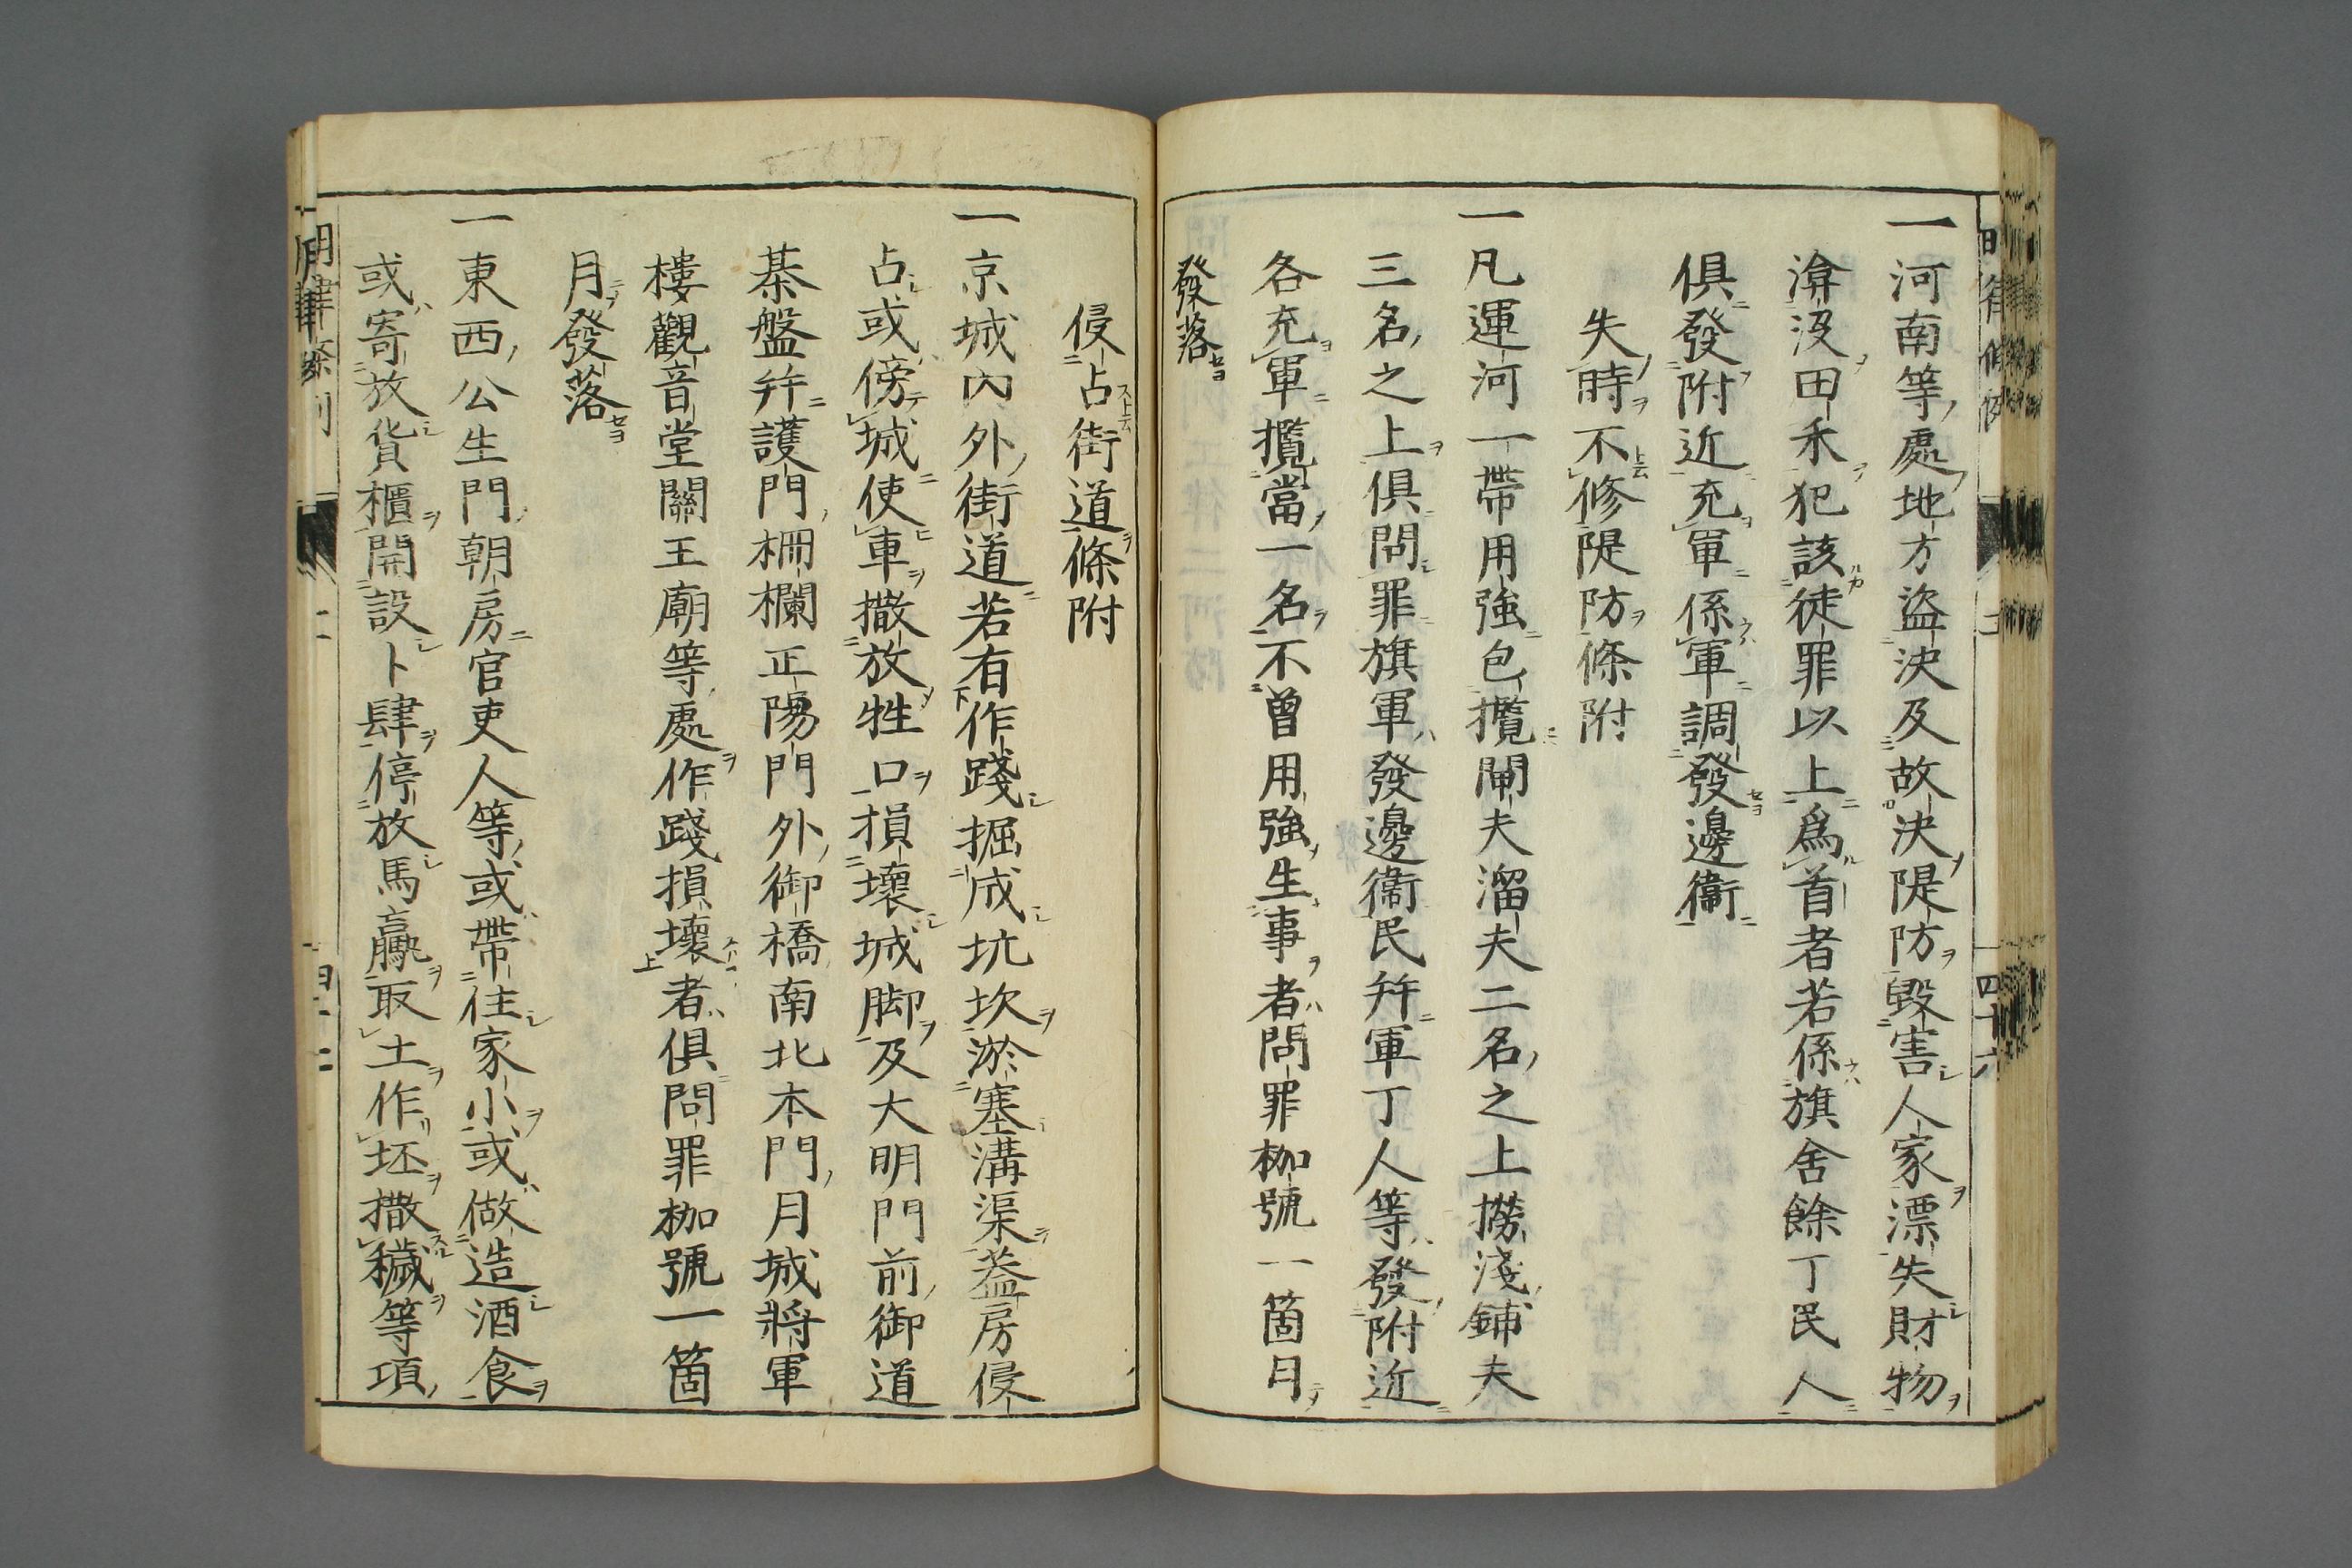 一河南等處地方盜決及故決隄防毀害人家漂失財物
渰沒田禾犯該徒罪以上爲首者若係旗舍餘丁民人
俱發附近充軍係軍調發邊衞
失時不修隄防條附
一凡運河一帶用強包攬閘夫溜夫二名之上撈淺鋪夫
三名之上俱問罪旗軍發邊衞民幷軍丁人等發附近
各充軍攬當一名不曾用強生事者問罪枷號一箇月
發落
侵占街道條附
一京城內外街道若有作踐掘成坑坎淤塞溝渠蓋房侵
占或傍城使車撒放牲口損壞城脚及大明門前御道
棊盤幷護門柵欄正陽門外御橋南北本門月城將軍
樓觀音堂關王廟等處作踐損壞者俱問罪枷號一箇
月發落
一東西公生門朝房官吏人等或帶住家小或做造酒食
或寄放貨櫃開設卜肆停放馬驘取土作坯撒穢等項